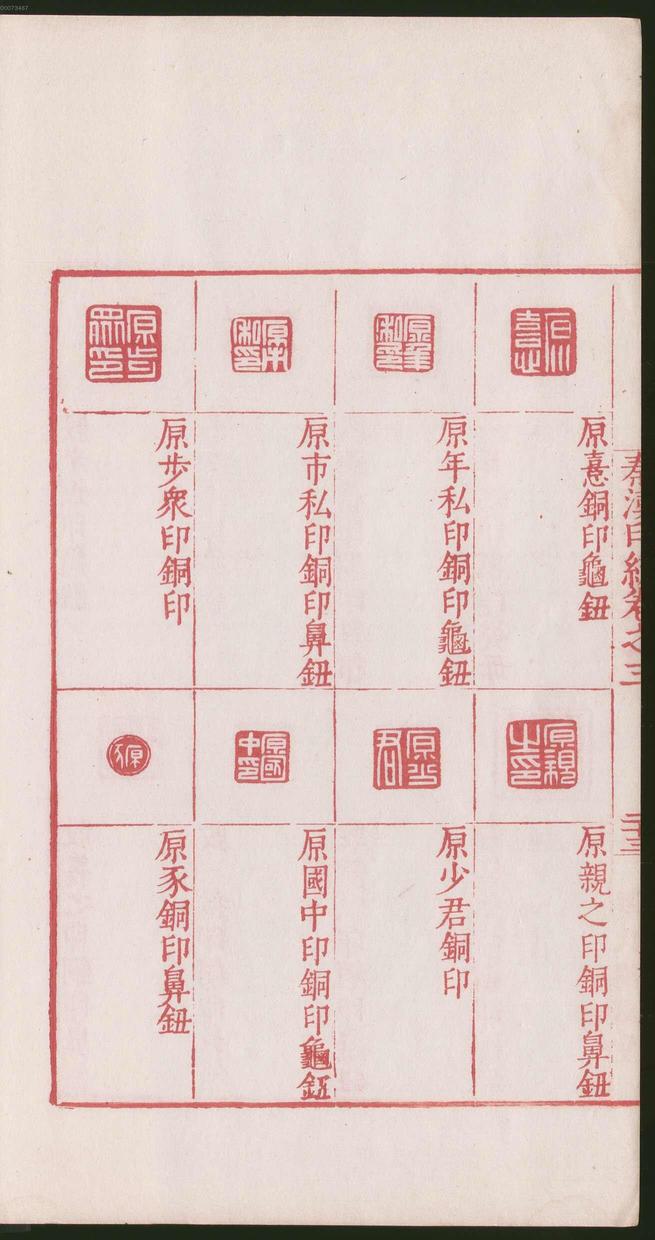 00073467
秦漢印統卷之三
二十三
原憙銅印龜鈕
原年私印銅印龜鈕
原市私印銅印鼻鈕
原步衆印銅印
原親之印銅印鼻鈕
原少君銅印
原國中印銅印龜鈕
原豕銅印鼻鈕